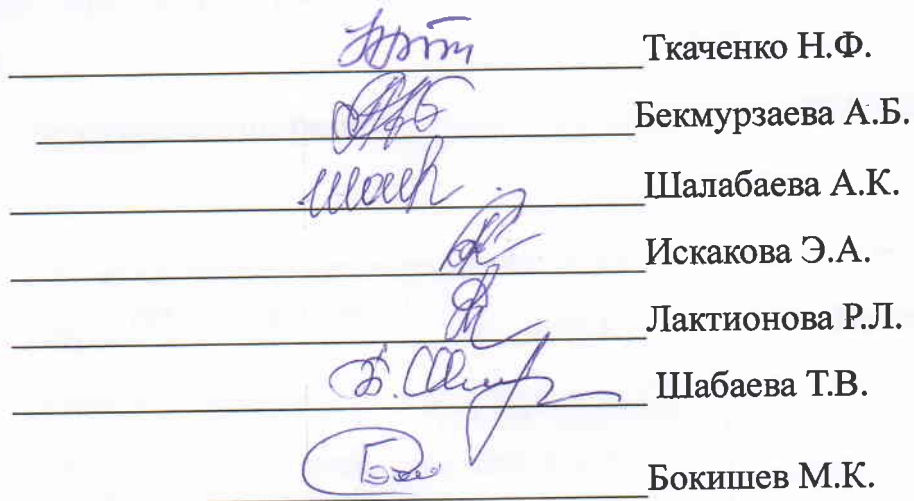 Ткаченко Н.Ф.
Бекмурзаева А.Б.
Шалабаева А.К.
Искакова Э.А.
Лактионова Р.Л.
Шабаева Т.В.
Бокишев М.К.